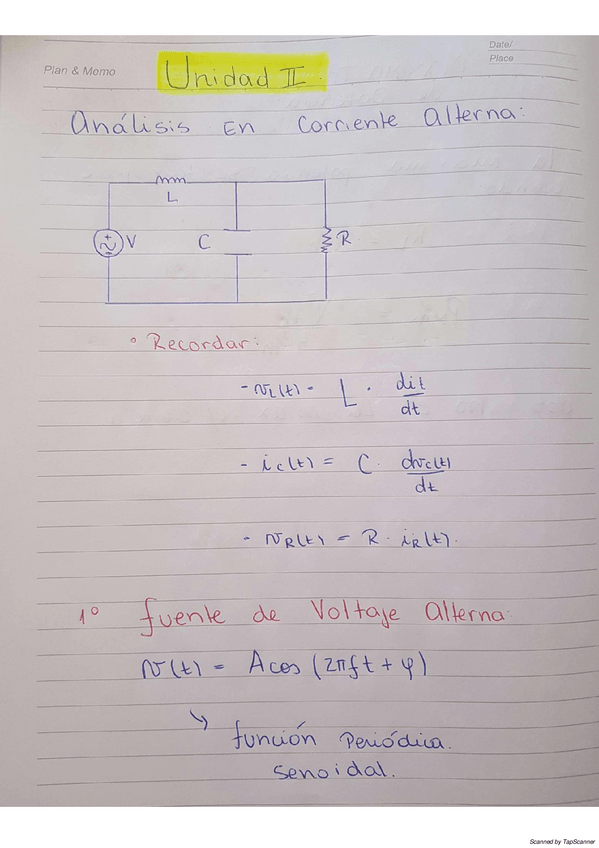 Date/
Plan & Memo
Place
Unidad II.
Análisis En Corriente Alterna:
L
V
C
R
° Recordar:
- v_L(t) = L · dit/dt
- i_C(t) = C · dv_C(t)/dt
- v_R(t) = R · i_R(t).
1° fuente de Voltaje Alterna:
v(t) = A cos (2πft + φ)
↳ función Periódica.
senoidal.
Scanned by TapScanner